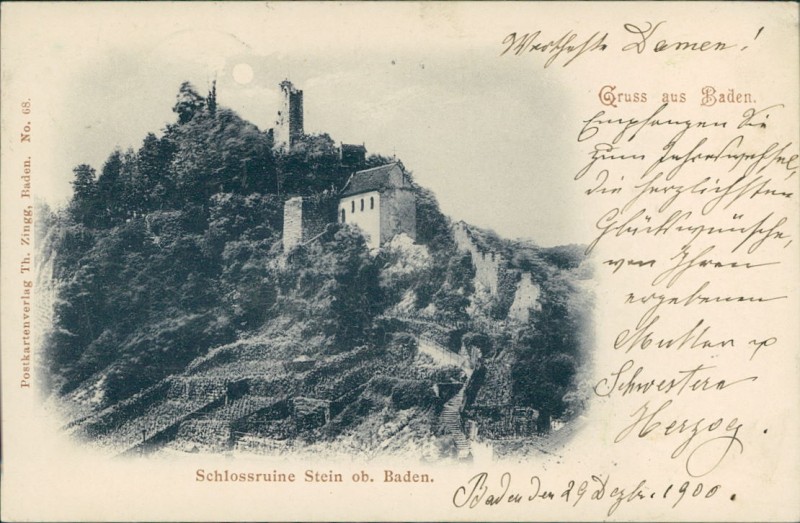 Werthefte Damen!
Gruss aus Baden.
Empfangen Sie
zum Jahreswechsel,
die herzlichsten
Glückwünsche,
von Ihren
ergebenen
Mutter u
Schwestern
Herzog.
Baden den 29 Dezbr. 1900.
Schlossruine Stein ob. Baden.
Postkartenverlag Th. Zingg, Baden. No. 68.